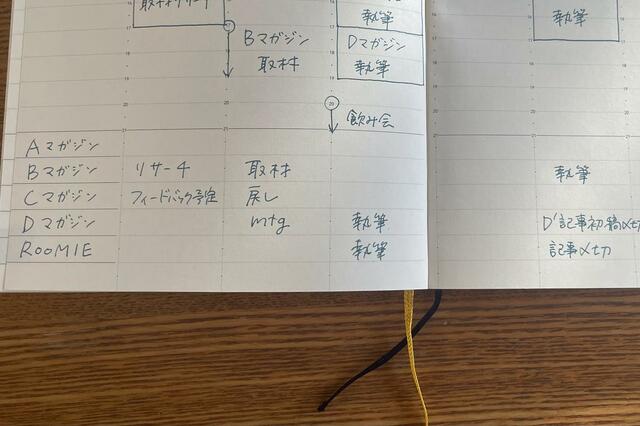 執筆
執筆
Bマガジン
取材
Dマガジン
執筆
20
飲み会
Aマガジン
Bマガジン リサーチ 取材 執筆
Cマガジン フィードバック予定 戻し
Dマガジン mtg 執筆 D'記事初稿〆切
ROOMIE 執筆 記事〆切